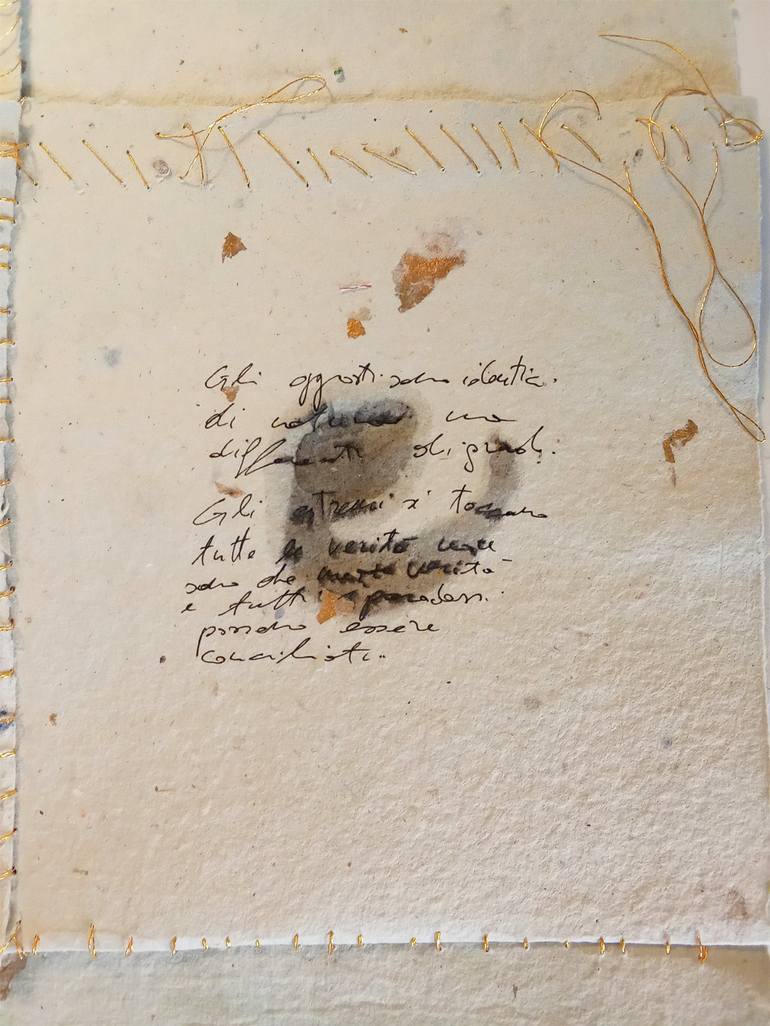 Gli opposti sono identici
di natura ma
differenti di grado.
Gli estremi si toccano
tutte le verità non
sono che mezze verità
e tutti i paradossi
possono essere
conciliati..